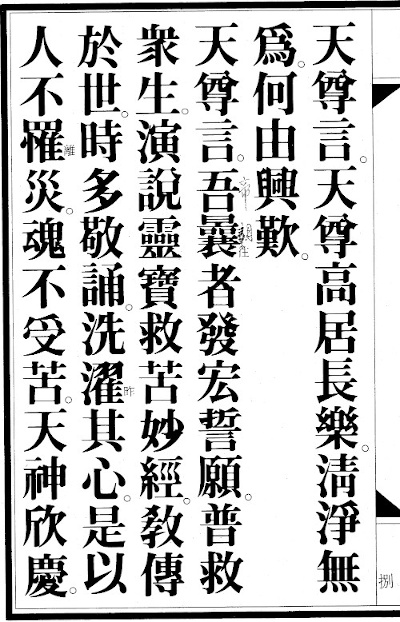 天尊言。天尊高居長樂。清淨無
爲何由興歎。
天尊言。吾曩者發宏誓願。普救
衆生。演說靈寶救苦妙經。敎傳
於世。時多敬誦。洗濯其心。是以
昨
人不罹災。魂不受苦。天神欣慶。
離
捌